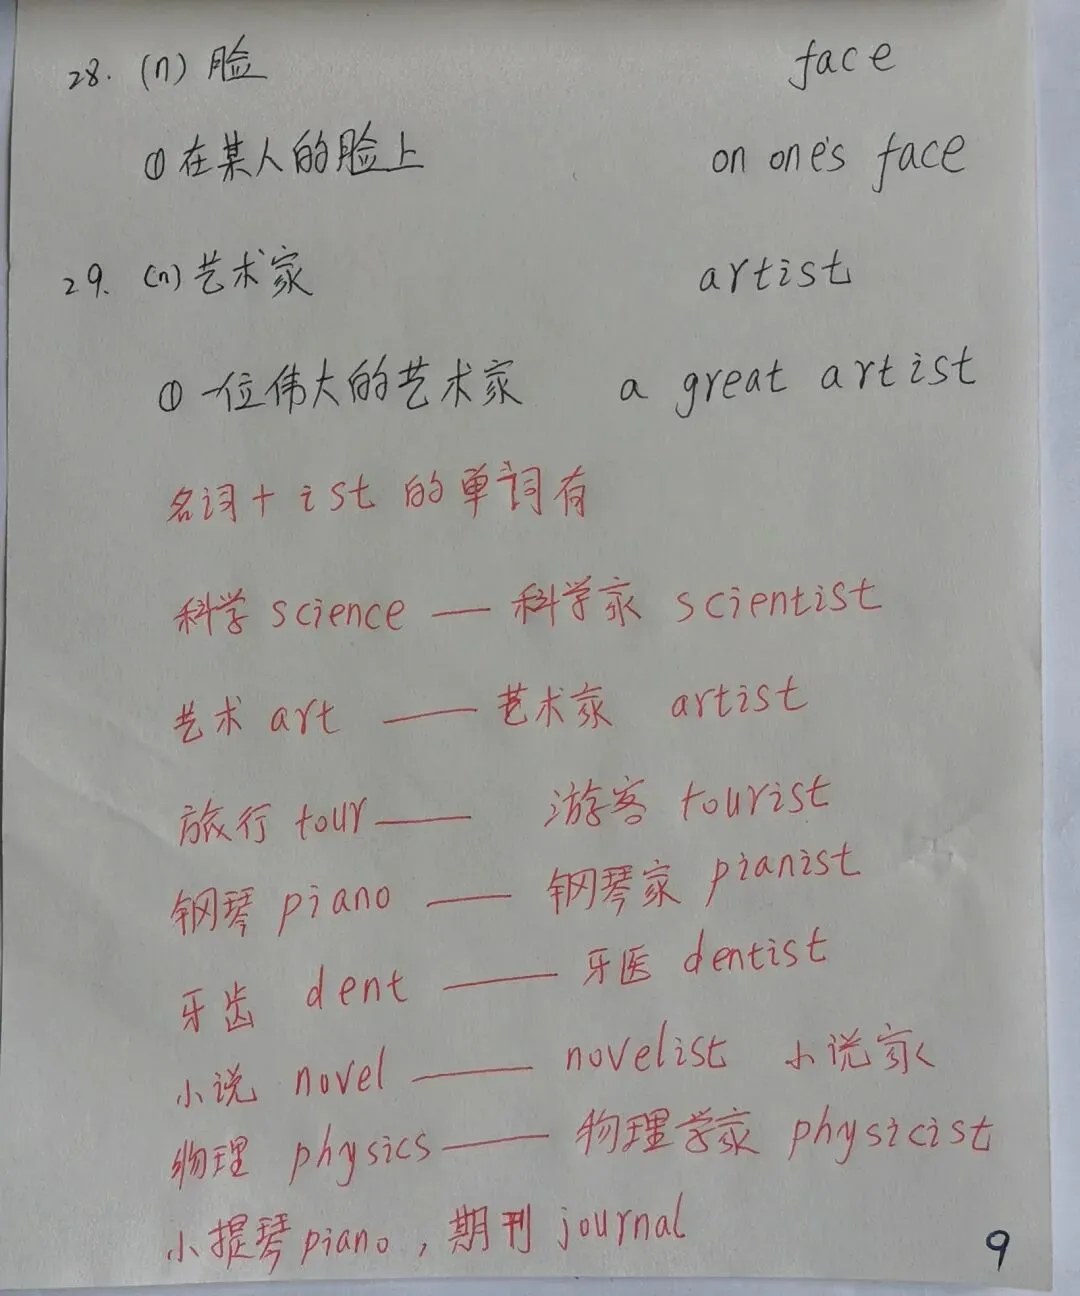 28. (n) 脸 face
① 在某人的脸上 on one's face
29. (n) 艺术家 artist
① 一位伟大的艺术家 a great artist
名词 + ist 的单词有
科学 science — 科学家 scientist
艺术 art — 艺术家 artist
旅行 tour — 游客 tourist
钢琴 piano — 钢琴家 pianist
牙齿 dent — 牙医 dentist
小说 novel — novelist 小说家
物理 physics — 物理学家 physicist
小提琴 piano , 期刊 journal
9